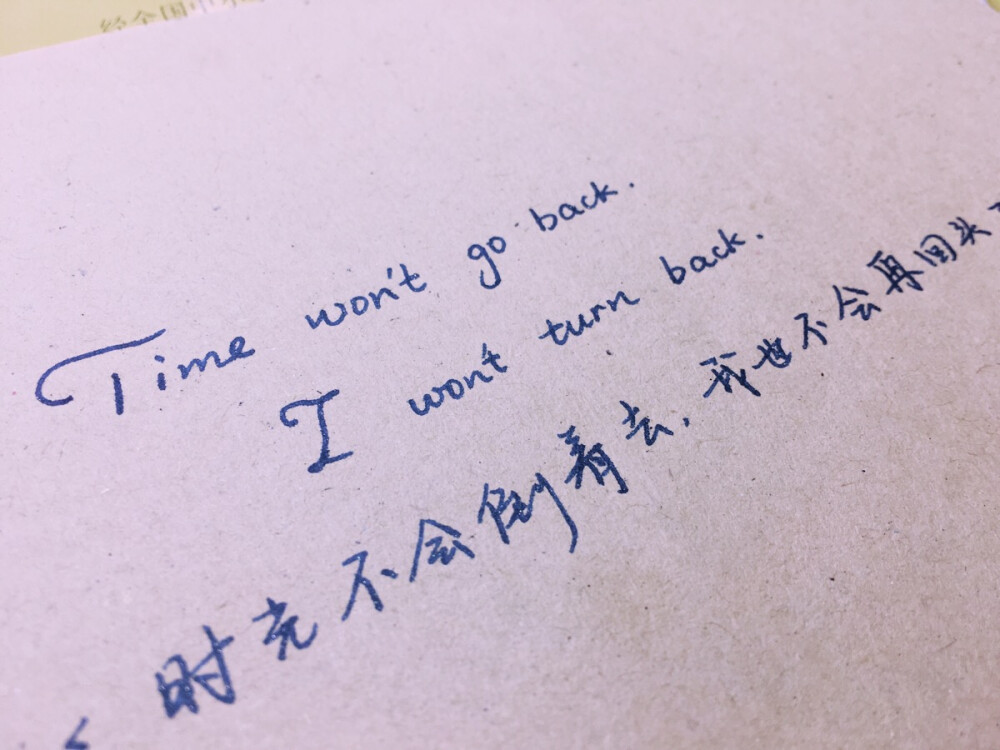 Time won't go back.
I won't turn back.
时光不会倒着去,我也不会再回头